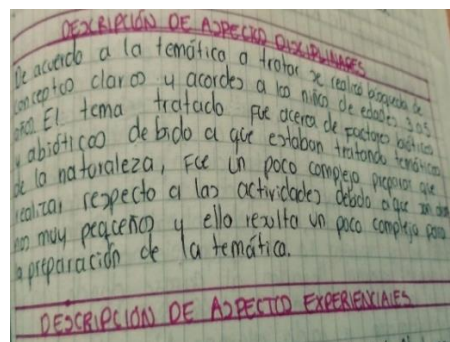 DESCRIPCIÓN DE ASPECTO DISCIPLINARES
De acuerdo a la temática a tratar se realizó búsqueda de
conceptos claros y acordes a los niños de edades 3 a 5
años. El tema tratado fue acerca de factores bióticos
y abióticos debido a que estaban tratando temáticas
de la naturaleza, Fue un poco complejo preparar que
realizar respecto a las actividades debido a que son
muy pequeños y ello resulta un poco complejo para
la preparación de la temática.
DESCRIPCIÓN DE ASPECTOS EXPERIENCIALES